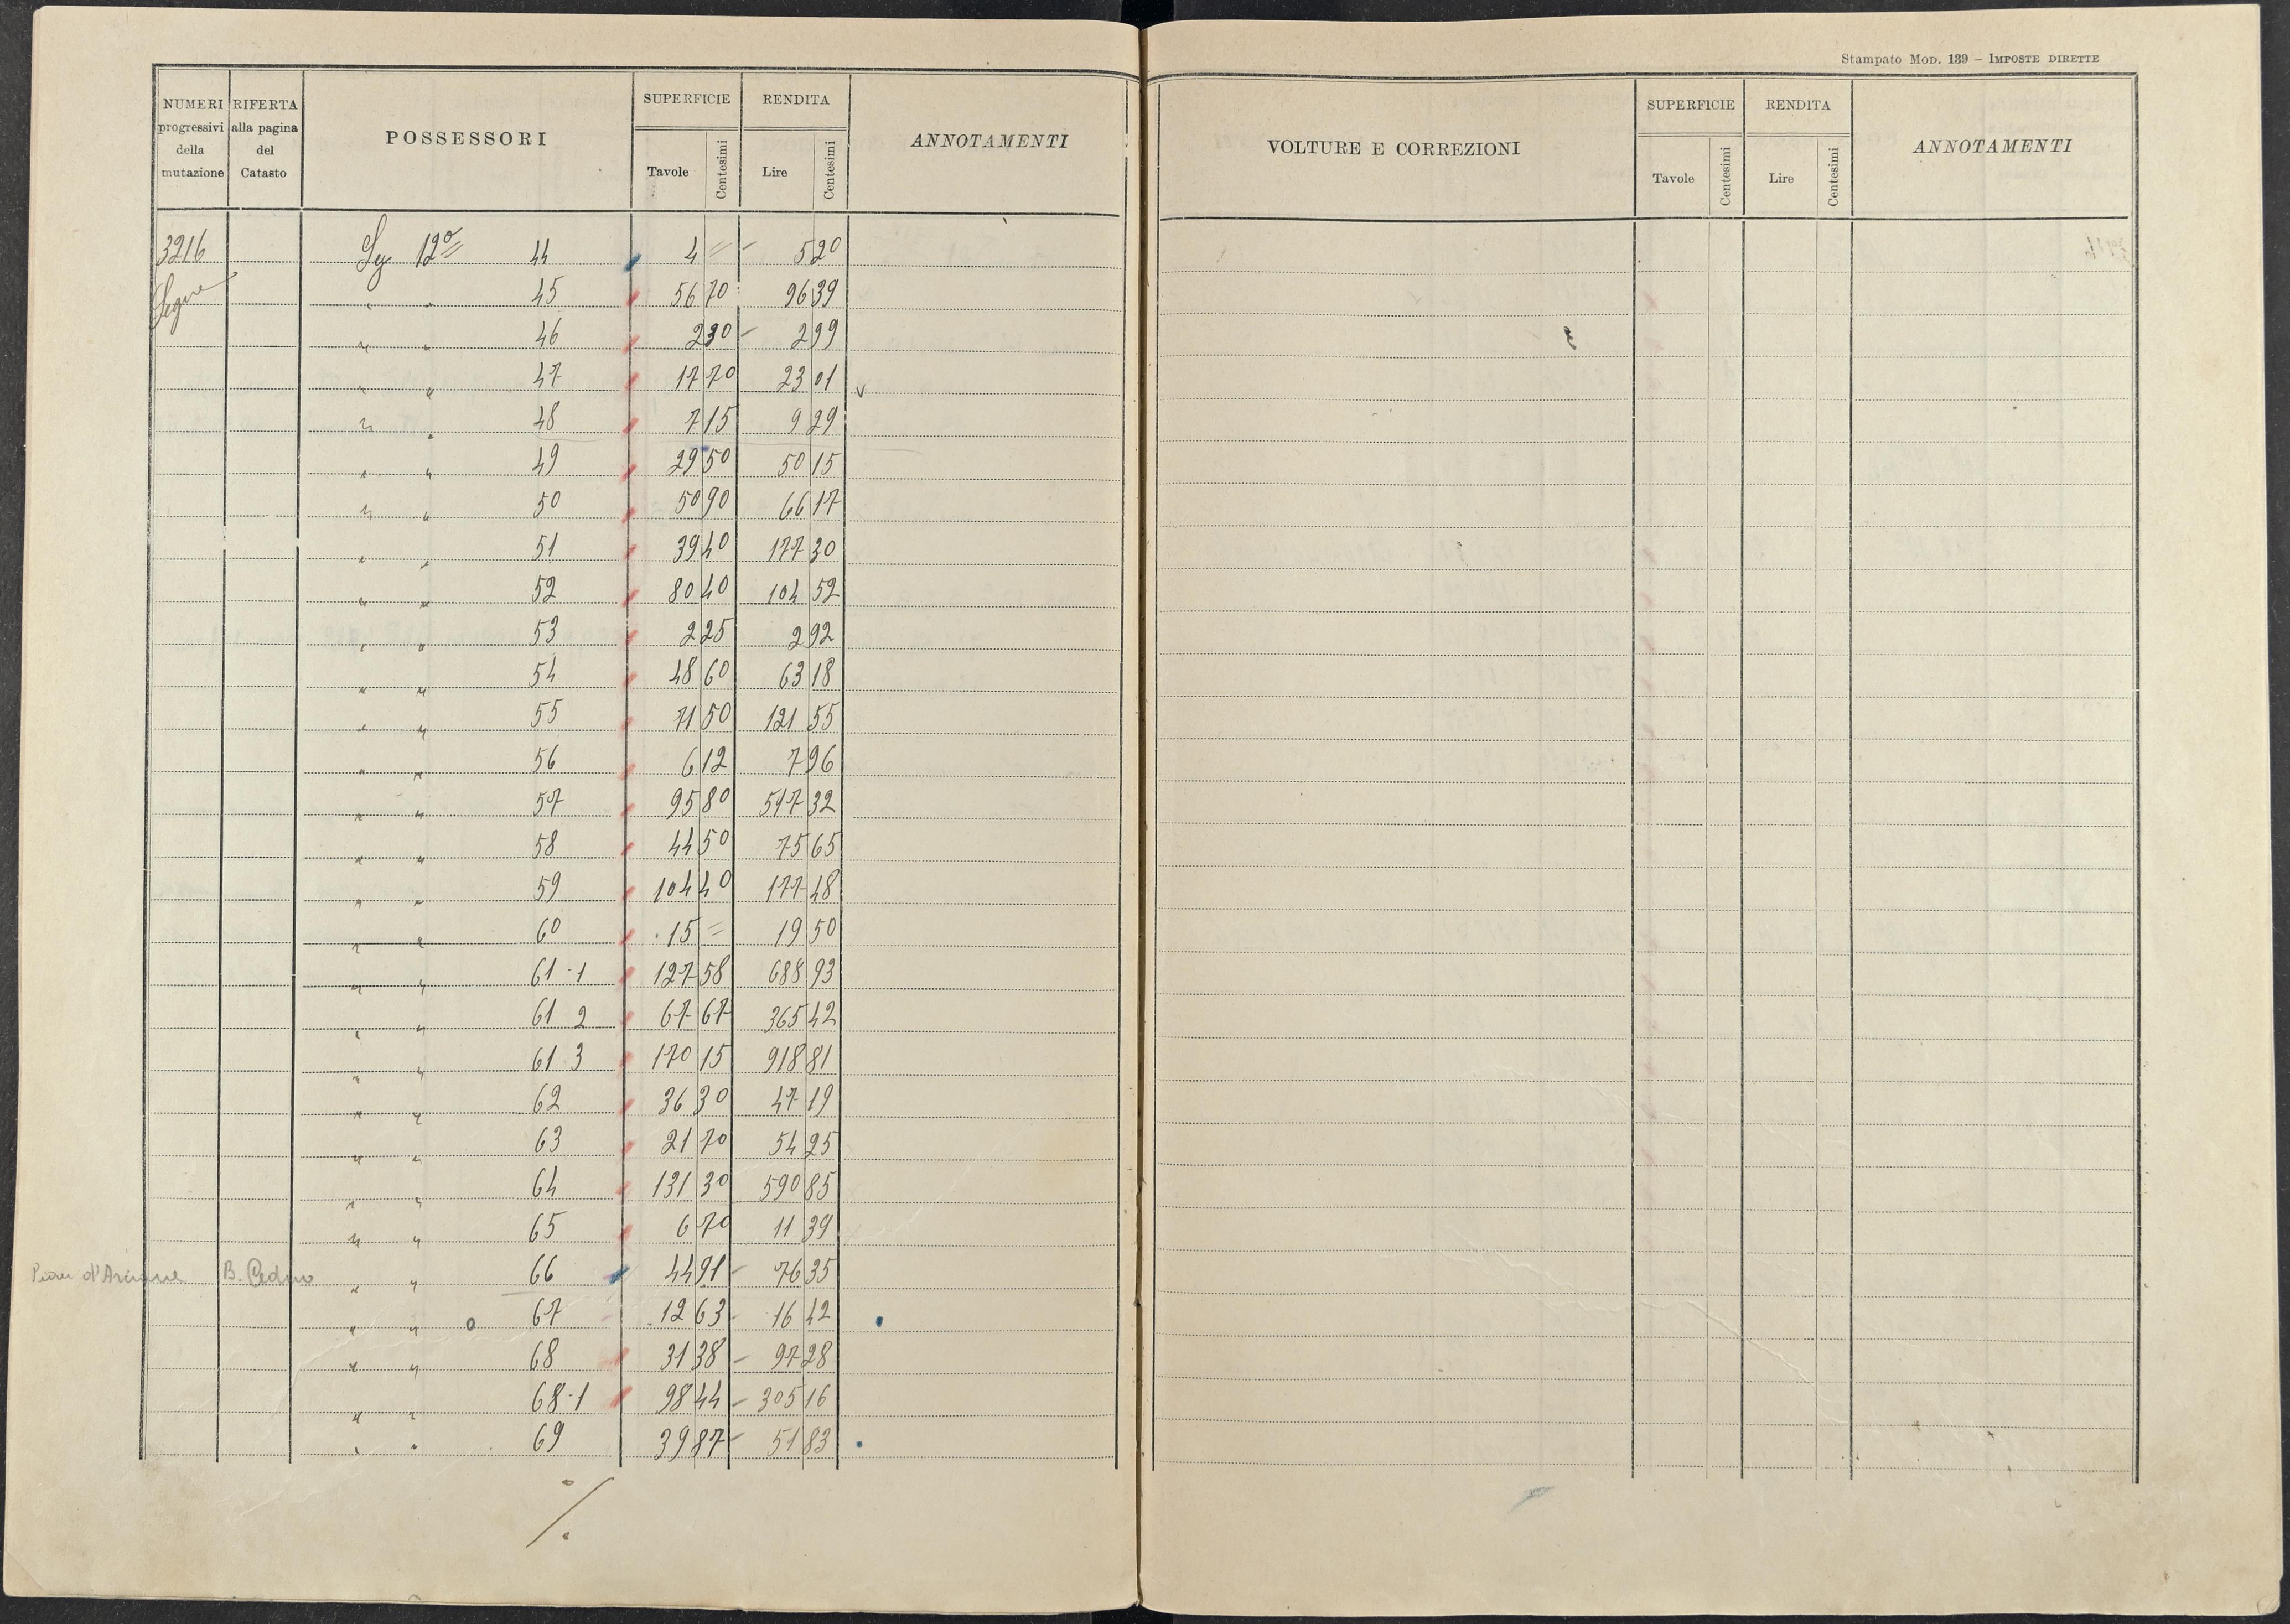 Stampato Mod. 139 – Imposte dirette
NUMERI progressivi della mutazione | RIFERTA alla pagina del Catasto | POSSESSORI | SUPERFICIE Tavole Centesimi | RENDITA Lire Centesimi | ANNOTAMENTI
VOLTURE E CORREZIONI | SUPERFICIE Tavole Centesimi | RENDITA Lire Centesimi | ANNOTAMENTI
3216 12° 44 4 = – 5 20
Segue " " 45 56 70 96 39
" " 46 2 30 – 2 99
" " 47 17 70 23 01 v
" " 48 7 15 9 29
" " 49 29 50 50 15
" " 50 50 90 66 17
" " 51 39 40 177 30
" " 52 80 40 104 52
" " 53 2 25 2 92
" " 54 48 60 63 18
" " 55 71 50 121 55
" " 56 6 12 7 96
" " 57 95 80 517 32
" " 58 44 50 75 65
" " 59 104 40 177 48
" " 60 15 = 19 50
" " 61-1 127 58 688 93
" " 61 2 67 67 365 42
" " 61 3 170 15 918 81
" " 62 36 30 47 19
" " 63 21 70 54 25
" " 64 131 30 590 85
" " 65 6 70 11 39
B. " " 66 44 91 – 76 35
" " o 67 12 63 – 16 42
" " 68 31 38 – 97 28
" " 68-1 98 44 – 305 16
" " 69 39 87 – 51 83
./.